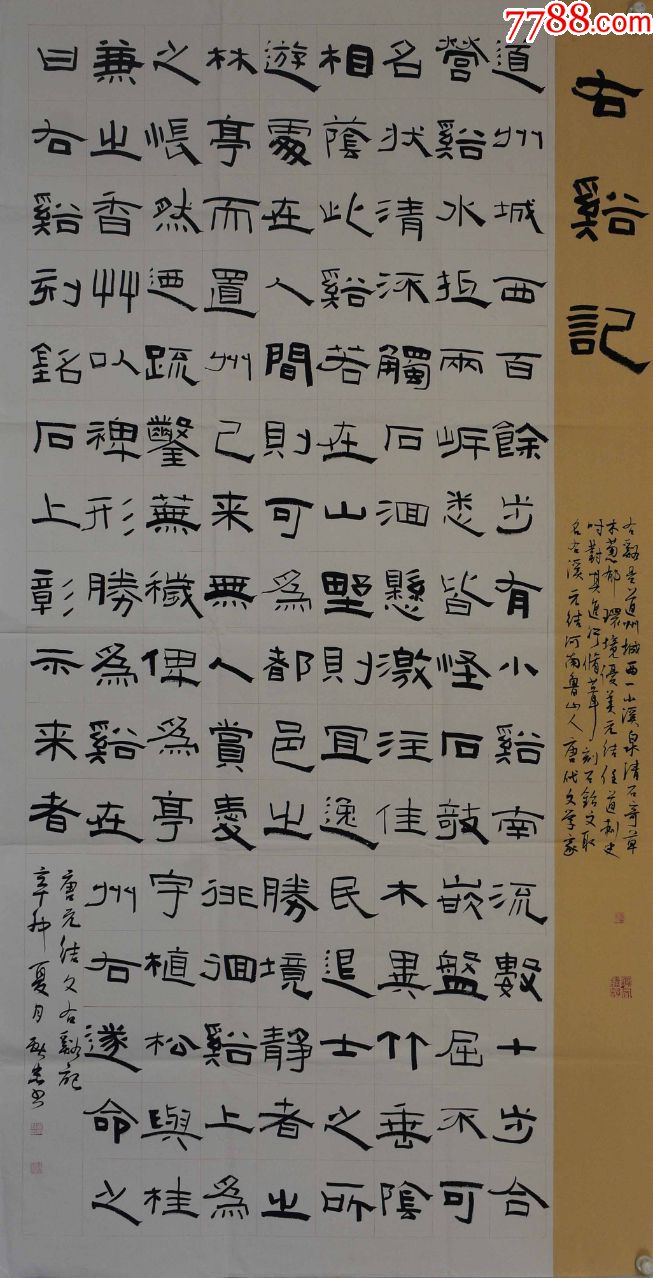 7788.com
右谿記
右谿是道州城西一小溪泉清石奇草
木蔥郁環境優美元结任道刺史
时對其進行脩葺刻石銘文取
名右溪 元结河南魯山人唐代文学家
道州城西百餘步有小谿南流數十步合
營谿水抵兩岸悉皆怪石攲嵌盤屈不可
名狀清流觸石洄懸激注佳木異竹垂陰
相蔭此谿若在山野則宜逸民退士之所
遊處在人間則可為都邑之勝境靜者之
林亭而置州已来無人賞愛徘徊谿上為
之悵然迺疏鑿蕪穢俾為亭宇植松與桂
兼之香艸以裨形勝為谿在州右遂命之
曰右谿刻銘石上彰示来者
唐元结文右谿記
辛卯夏月